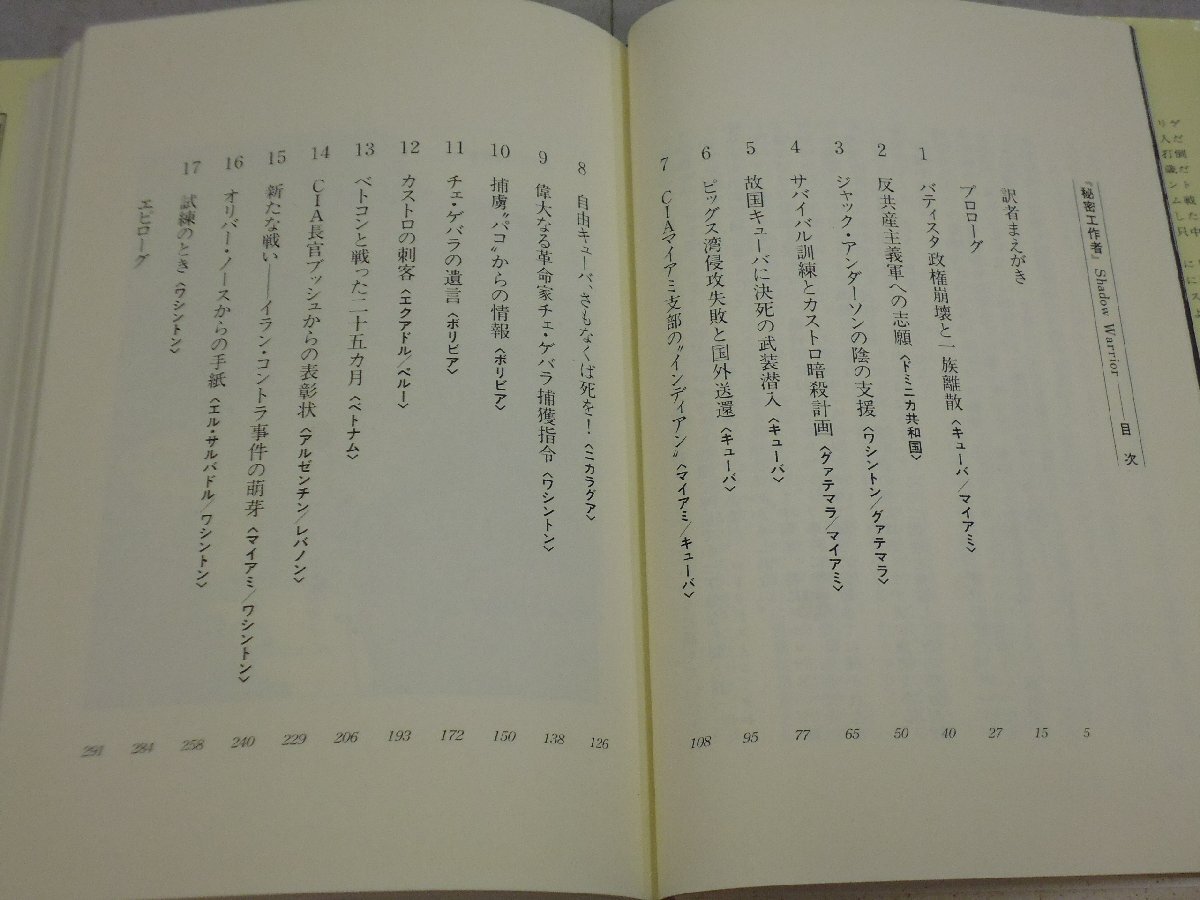 『秘密工作者』 Shadow Warrior——目次
訳者まえがき 5
プロローグ 15
1 バティスタ政権崩壊と一族離散〈キューバ/マイアミ〉 27
2 反共産主義軍への志願〈ドミニカ共和国〉 40
3 ジャック・アンダーソンの陰の支援〈ワシントン/グァテマラ〉 50
4 サバイバル訓練とカストロ暗殺計画〈グァテマラ/マイアミ〉 65
5 故国キューバに決死の武装潜入〈キューバ〉 77
6 ピッグス湾侵攻失敗と国外送還〈キューバ〉 95
7 CIAマイアミ支部の〝インディアン〟〈マイアミ/キューバ〉 108
8 自由キューバ、さもなくば死を!〈ニカラグア〉 126
9 偉大なる革命家チェ・ゲバラ捕獲指令〈ワシントン〉 138
10 捕虜〝パコ〟からの情報〈ボリビア〉 150
11 チェ・ゲバラの遺言〈ボリビア〉 172
12 カストロの刺客〈エクアドル/ペルー〉 193
13 ベトコンと戦った二十五カ月〈ベトナム〉 206
14 CIA長官ブッシュからの表彰状〈アルゼンチン/レバノン〉 229
15 新たな戦い——イラン・コントラ事件の萌芽〈マイアミ/ワシントン〉 240
16 オリバー・ノースからの手紙〈エル・サルバドル/ワシントン〉 258
17 試練のとき〈ワシントン〉 284
エピローグ 291